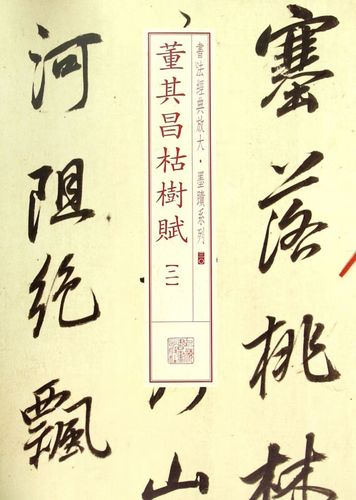 書法經典放大·墨蹟系列
三〇
董其昌枯樹賦
【二】
塞落桃林
山
河阻絶飄